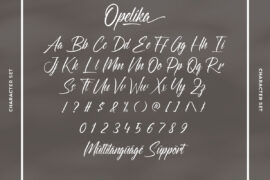 Opelika
Aa Bb Cc Dd Ee Ff Gg Hh Ii
Jj Kk Ll Mm Nn Oo Pp Qq Rr
Ss Tt Uu Vv Ww Xx Yy Zz
0 1 2 3 4 5 6 7 8 9
Multilanguage Support
CHARACTER SET
CHARACTER SET